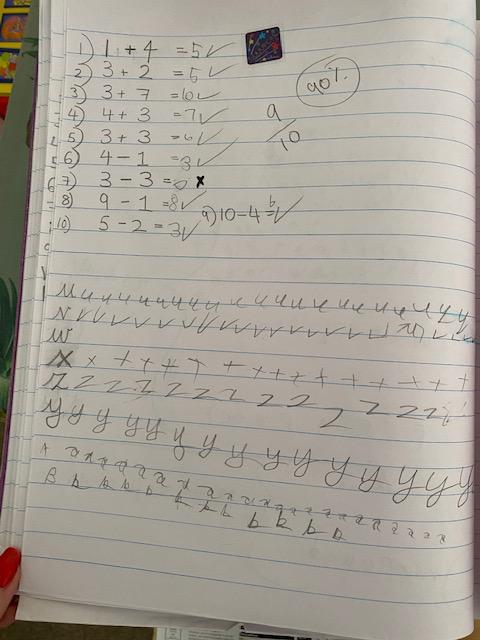 1) 1 + 4 = 5 ✓
2) 3 + 2 = 5 ✓
3) 3 + 7 = 10 ✓
4) 4 + 3 = 7 ✓
5) 3 + 3 = 6 ✓
6) 4 - 1 = 3 ✓
7) 3 - 3 = 0 x
8) 9 - 1 = 8 ✓
9) 10 - 4 = 6 ✓
10) 5 - 2 = 3 ✓
90%
9/10
u u u u u u u u u u u u u u u u u u u u
v v v v v v v v v v v v v v v v v v
w
x x x x x x x x x x x x x x x x x
z z z z z z z z z z z z z z
y y y y y y y y y y y y y y y y
A a a a a a a a a a a a a a a a a a a a a
B b b b b b b b b b b b